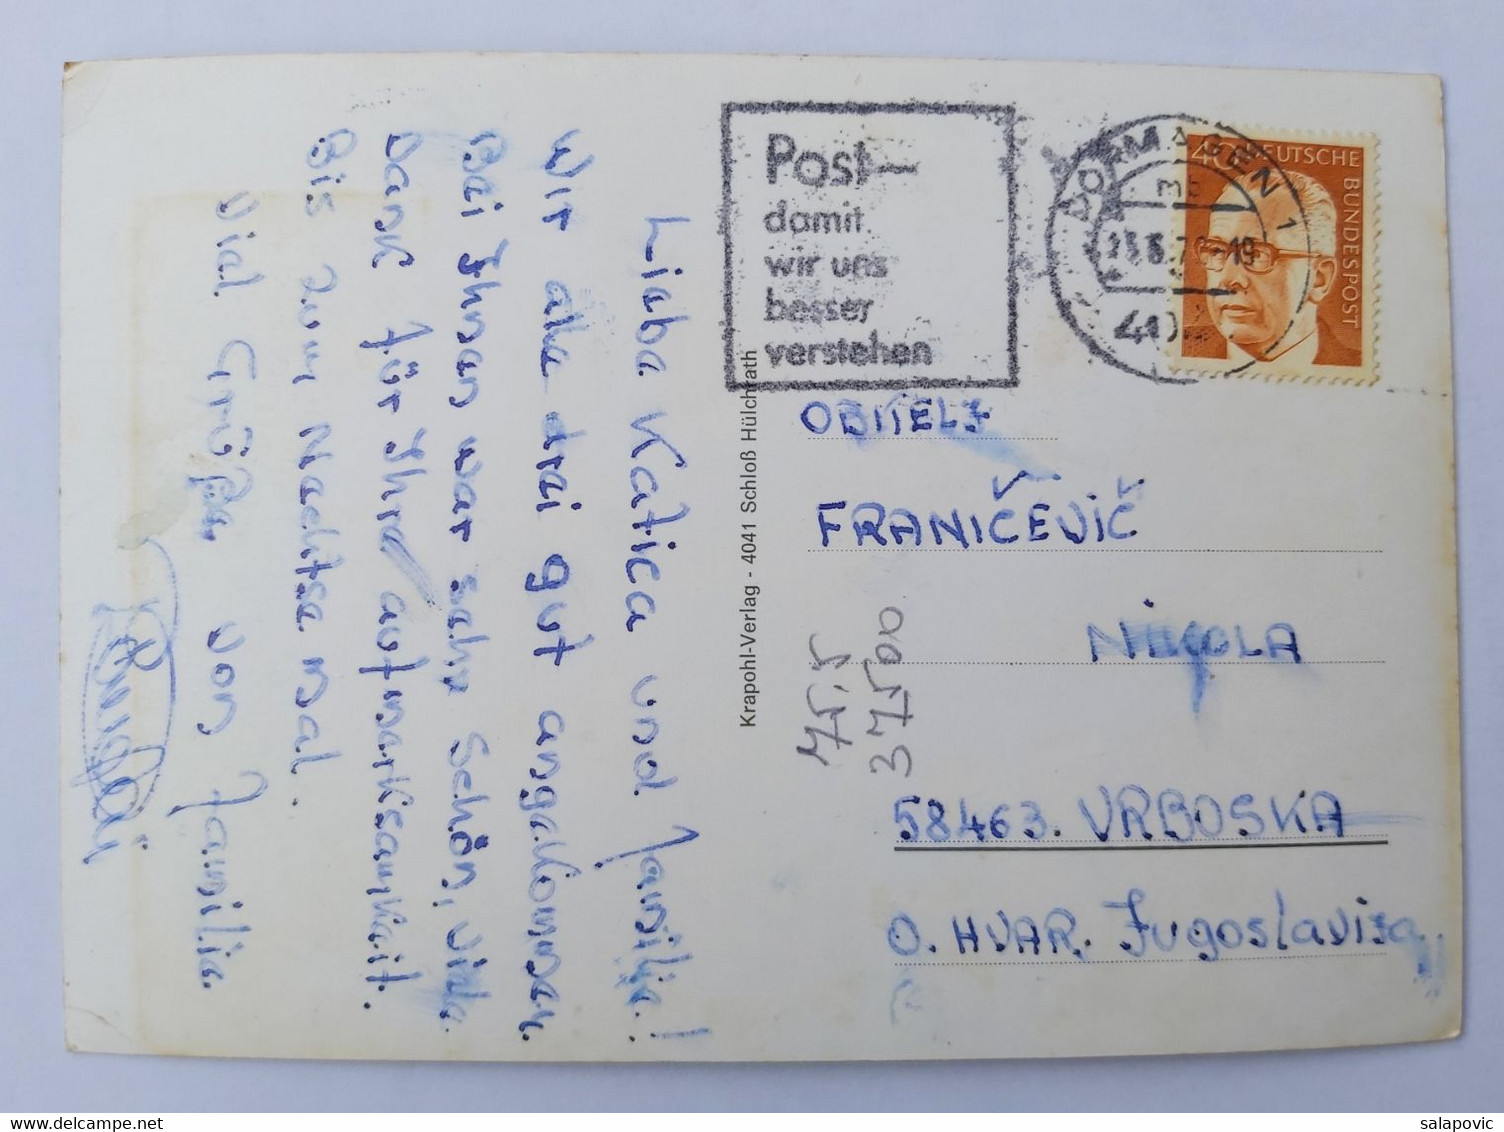 Liebe Katica und Familie!
Wir alle drei gut angekommen.
Bei Ihnen war sehr schön, viele
Dank für Ihre aufmerksamkeit.
Bis zum Nachste mal.
Viel Grüße von Familie
Krapohl-Verlag - 4041 Schloß Hülchrath
Post—
damit
wir uns
besser
verstehen
DORMAGEN 1
mb
-19
404
40 DEUTSCHE BUNDESPOST
OBITELJ
FRANIČEVIČ
NIKOLA
58463. VRBOSKA
O. HVAR. Jugoslavija
75,5
37500
salapovic